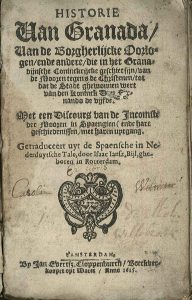 HISTORIE
Van Granada/
Van de Borgherlijcke Oorlo-
gen/ende andere/ die in het Grana-
dijnsche Coninckrijcke geschiet zijn/van
de Mooren tegens de Christenen/tot
dat de Stadt ghewonnen wert
van den Koninck Don Fer-
nando de vijfde.
Met een Discours van de Incomste
der Mooren in Spaengien/ ende hare
geschiedenissen/ met haren uptgang.
Getraduceert uyt de Spaensche in Ne-
derduytsche Tale, door Isaac Iansz, Bijl, ghe-
boren in Rotterdam,
T'AMSTERDAM,
By Jan Evertsz. Cloppenburch/ Boeckver-
kooper opt Water/ Anno 1615.